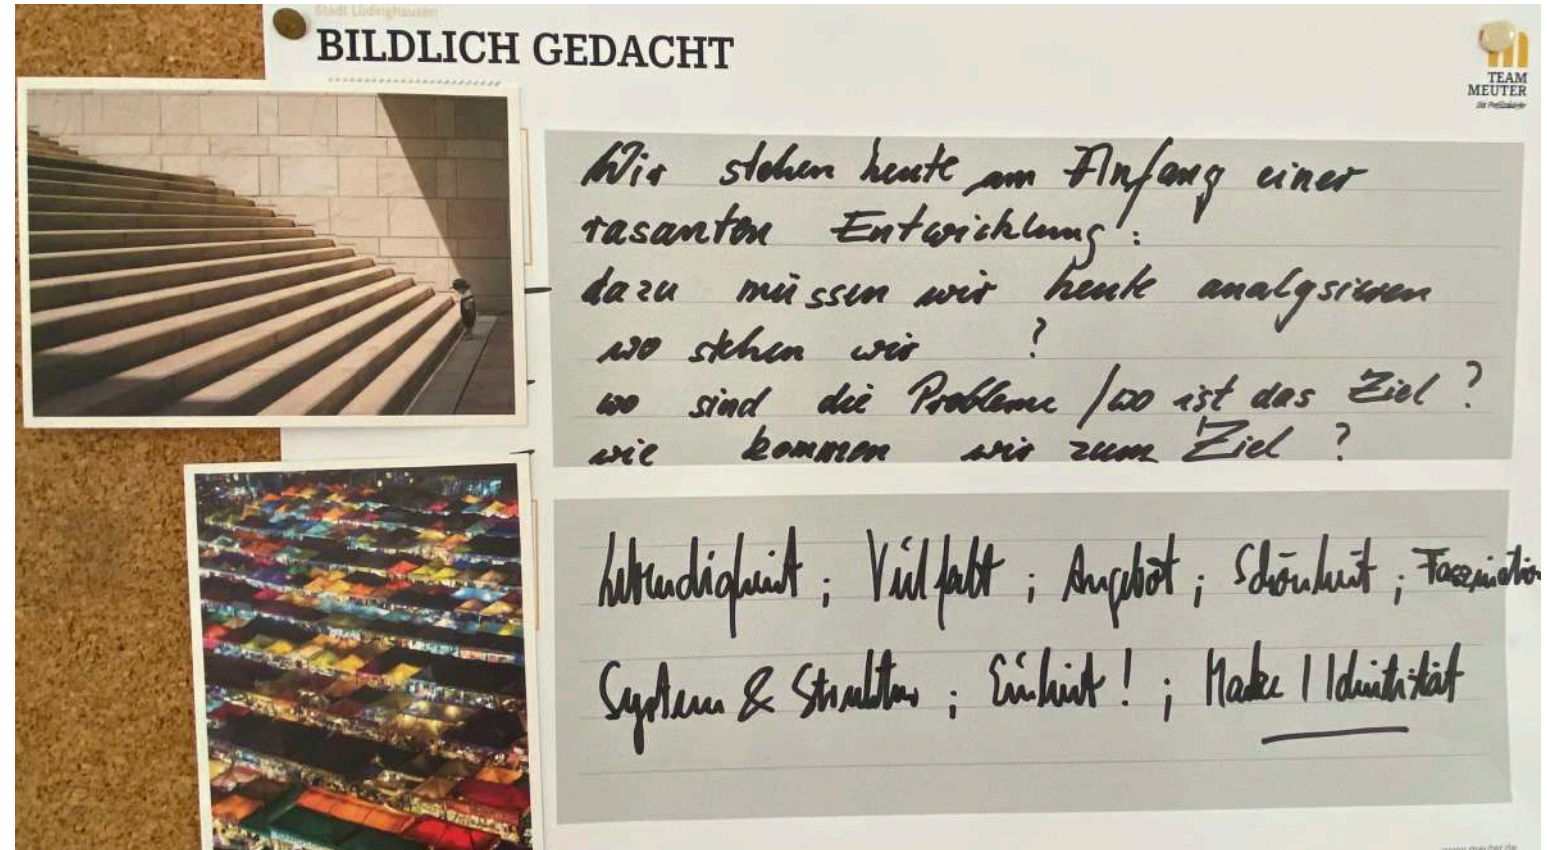 Stadt Lüdinghausen
BILDLICH GEDACHT
TEAM
MEUTER
Die Profilschärfer
Wir stehen heute am Anfang einer
rasanten Entwicklung:
dazu müssen wir heute analysieren
wo stehen wir ?
wo sind die Probleme / wo ist das Ziel ?
wie kommen wir zum Ziel ?
Lebendigkeit ; Vielfalt ; Angebot ; Schönheit ; Faszination
System & Struktur ; Einheit ! ; Marke | Identität
www.meuter.de